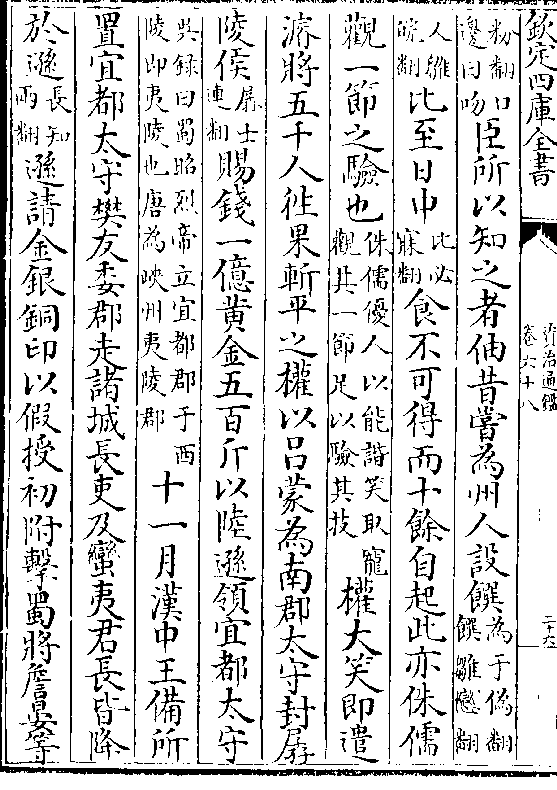 欽定四庫全書
資治通鑑
卷六十八
粉翻口邊曰吻臣所以知之者伷昔嘗為州人設饌為于偽翻饌雛戀翻
又雛皖翻比至日中比必寐翻食不可得而十餘自起此亦侏儒
觀一節之驗也侏儒優人以能諧笑取寵觀其一節足以驗其技權大笑即遣
濬將五千人往果斬平之權以呂蒙為南郡太守封孱
陵侯孱士連翻賜錢一億黄金五百斤以陸遜領宜都太守
吳錄曰蜀昭烈帝立宜都郡于西陵即夷陵也唐為峽州夷陵郡十一月漢中王備所
置宜都太守樊友委郡走諸城長吏及蠻夷君長皆降
於遜長知兩翻遜請金銀銅印以假授初附擊蜀將詹晏等